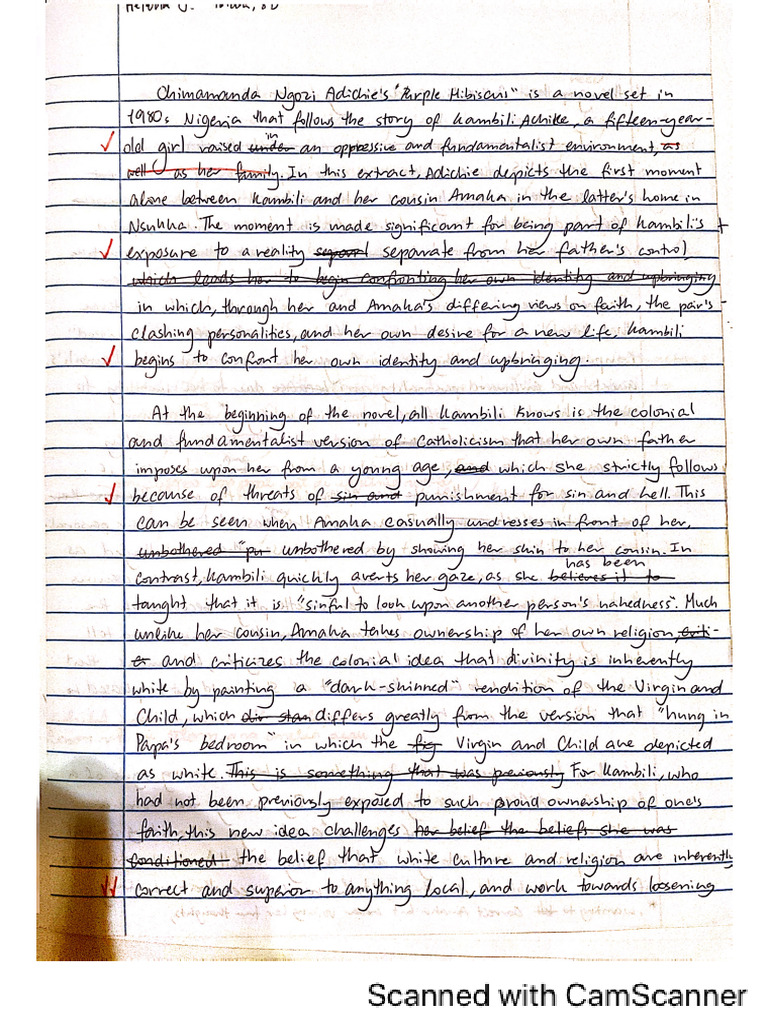 Chimamanda Ngozi Adichie's "Purple Hibiscus" is a novel set in
1980s Nigeria that follows the story of Kambili Achike, a fifteen-year-
old girl raised under in an oppressive and fundamentalist environment, as
well as her family. In this extract, Adichie depicts the first moment
alone between Kambili and her cousin Amaka in the latter's home in
Nsukka. The moment is made significant for being part of Kambili's +
exposure to a reality separat separate from her father's control,
which leads her to begin confronting her own identity and upbringing
in which, through her and Amaka's differing views on faith, the pair's
clashing personalities, and her own desire for a new life, Kambili
begins to confront her own identity and upbringing.
At the beginning of the novel, all Kambili knows is the colonial
and fundamentalist version of Catholicism that her own father
imposes upon her from a young age, and which she strictly follows
because of threats of sin and punishment for sin and hell. This
can be seen when Amaka casually undresses in front of her,
unbothered "pu unbothered by showing her skin to her cousin. In
contrast, Kambili quickly averts her gaze, as she believes it to has been
taught that it is "sinful to look upon another person's nakedness". Much
unlike her cousin, Amaka takes ownership of her own religion, criti-
and criticizes the colonial idea that divinity is inherently
white by painting a "dark-skinned" rendition of the Virgin and
Child, which differs greatly from the version that "hung in
Papa's bedroom" in which the fig Virgin and Child are depicted
as white. This is something that was previously For Kambili, who
had not been previously exposed to such proud ownership of one's
faith, this new idea challenges her belief the beliefs she was
conditioned the belief that white culture and religion are inherently
correct and superior to anything local, and work towards loosening
Scanned with CamScanner